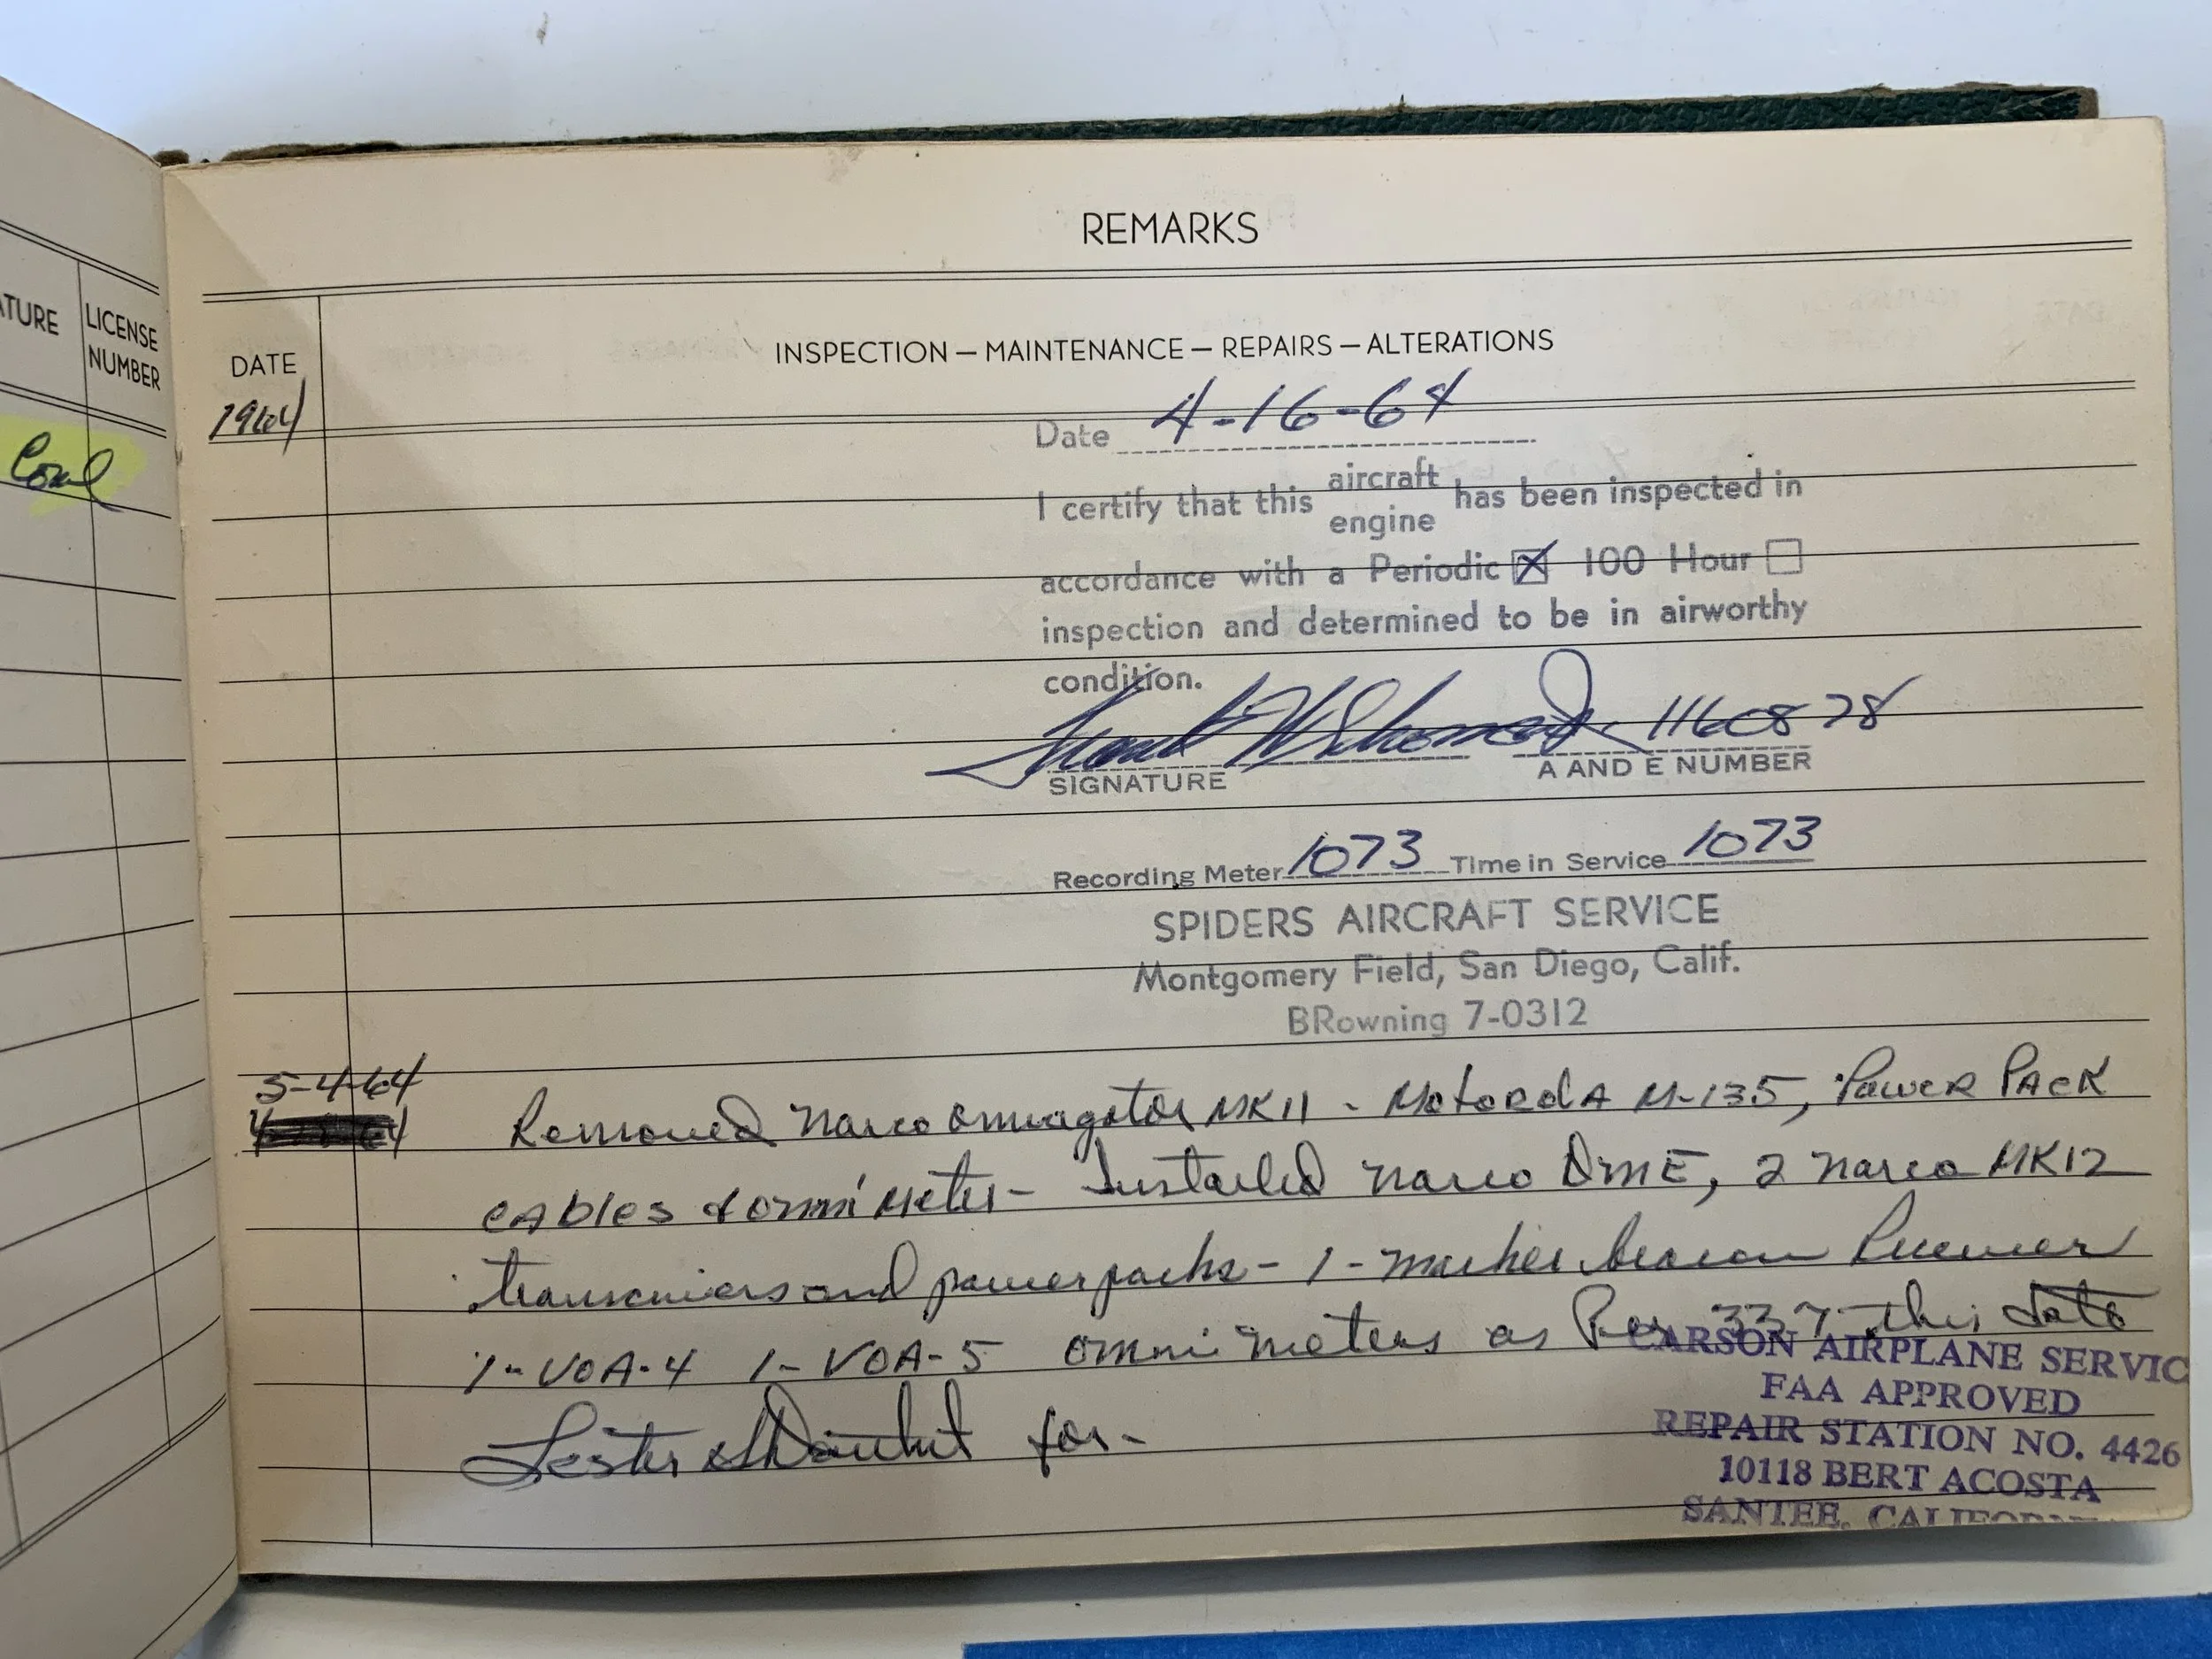 REMARKS
ATURE
LICENSE
NUMBER
DATE
INSPECTION — MAINTENANCE — REPAIRS — ALTERATIONS
1964
Date 4-16-64
I certify that this aircraft engine has been inspected in
accordance with a Periodic ☒ 100 Hour ☐
inspection and determined to be in airworthy
condition.
Frank 1160878
SIGNATURE A AND E NUMBER
Recording Meter 1073 Time in Service 1073
SPIDERS AIRCRAFT SERVICE
Montgomery Field, San Diego, Calif.
BRowning 7-0312
5-4-64
Removed Narco omnigator MK11 - Motorola M-135, Power Pack
cables & omni meter - Installed Narco DME, 2 Narco MK12
transceivers and powerpacks - 1 - marker beacon Receiver
1-VOA-4 1-VOA-5 omni meters as Per 337 this date
Lester for-
CARSON AIRPLANE SERVIC
FAA APPROVED
REPAIR STATION NO. 4426
10118 BERT ACOSTA
SANTEE, CALIFORN